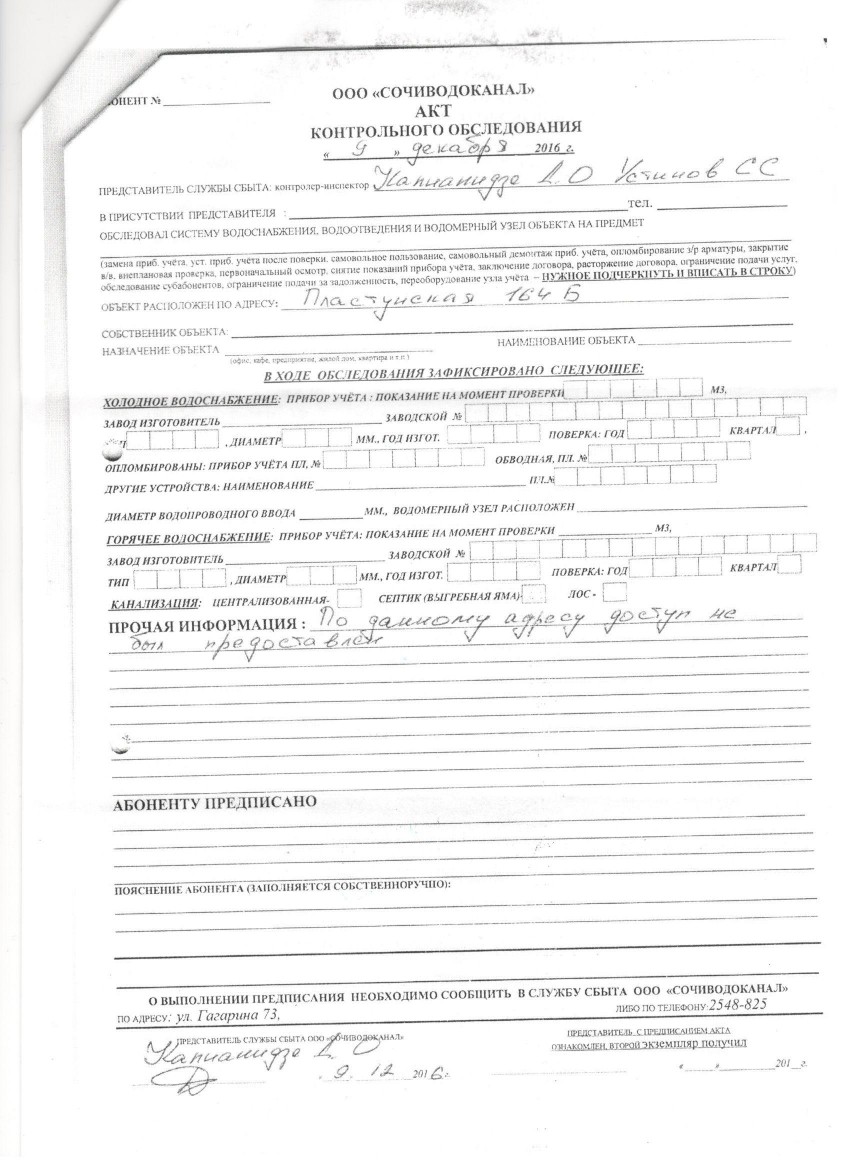 ОНЕНТ №
ООО «СОЧИВОДОКАНАЛ»
АКТ
КОНТРОЛЬНОГО ОБСЛЕДОВАНИЯ
« 9 » декабря 2016 г.
ПРЕДСТАВИТЕЛЬ СЛУЖБЫ СБЫТА: контролер-инспектор Капианидзе А.О Устинов СС
В ПРИСУТСТВИИ ПРЕДСТАВИТЕЛЯ : тел.
ОБСЛЕДОВАЛ СИСТЕМУ ВОДОСНАБЖЕНИЯ, ВОДООТВЕДЕНИЯ И ВОДОМЕРНЫЙ УЗЕЛ ОБЪЕКТА НА ПРЕДМЕТ
(замена приб. учёта, уст. приб. учёта после поверки, самовольное пользование, самовольный демонтаж приб. учёта, опломбирование з/р арматуры, закрытие
в/в, внеплановая проверка, первоначальный осмотр, снятие показаний прибора учёта, заключение договора, расторжение договора, ограничение подачи услуг,
обследование субабонентов, ограничение подачи за задолженность, переоборудование узла учёта – НУЖНОЕ ПОДЧЕРКНУТЬ И ВПИСАТЬ В СТРОКУ)
ОБЪЕКТ РАСПОЛОЖЕН ПО АДРЕСУ: Пластунская 164 Б
СОБСТВЕННИК ОБЪЕКТА:
НАЗНАЧЕНИЕ ОБЪЕКТА НАИМЕНОВАНИЕ ОБЪЕКТА
(офис, кафе, предприятие, жилой дом, квартира и т.п.)
В ХОДЕ ОБСЛЕДОВАНИЯ ЗАФИКСИРОВАНО СЛЕДУЮЩЕЕ:
ХОЛОДНОЕ ВОДОСНАБЖЕНИЕ: ПРИБОР УЧЁТА : ПОКАЗАНИЕ НА МОМЕНТ ПРОВЕРКИ М3,
ЗАВОД ИЗГОТОВИТЕЛЬ ЗАВОДСКОЙ №
, ДИАМЕТР ММ., ГОД ИЗГОТ. ПОВЕРКА: ГОД КВАРТАЛ ,
ОПЛОМБИРОВАНЫ: ПРИБОР УЧЁТА ПЛ, № ОБВОДНАЯ, ПЛ. №
ДРУГИЕ УСТРОЙСТВА: НАИМЕНОВАНИЕ ПЛ.№
ДИАМЕТР ВОДОПРОВОДНОГО ВВОДА ММ., ВОДОМЕРНЫЙ УЗЕЛ РАСПОЛОЖЕН
ГОРЯЧЕЕ ВОДОСНАБЖЕНИЕ: ПРИБОР УЧЁТА: ПОКАЗАНИЕ НА МОМЕНТ ПРОВЕРКИ М3,
ЗАВОД ИЗГОТОВИТЕЛЬ ЗАВОДСКОЙ №
ТИП , ДИАМЕТР ММ., ГОД ИЗГОТ. ПОВЕРКА: ГОД КВАРТАЛ
КАНАЛИЗАЦИЯ: ЦЕНТРАЛИЗОВАННАЯ- СЕПТИК (ВЫГРЕБНАЯ ЯМА)- ЛОС -
ПРОЧАЯ ИНФОРМАЦИЯ : По данному адресу доступ не
был предоставлен
АБОНЕНТУ ПРЕДПИСАНО
ПОЯСНЕНИЕ АБОНЕНТА (ЗАПОЛНЯЕТСЯ СОБСТВЕННОРУЧНО):
О ВЫПОЛНЕНИИ ПРЕДПИСАНИЯ НЕОБХОДИМО СООБЩИТЬ В СЛУЖБУ СБЫТА ООО «СОЧИВОДОКАНАЛ»
ПО АДРЕСУ: ул. Гагарина 73, ЛИБО ПО ТЕЛЕФОНУ: 2548-825
ПРЕДСТАВИТЕЛЬ СЛУЖБЫ СБЫТА ООО «СОЧИВОДОКАНАЛ» ПРЕДСТАВИТЕЛЬ С ПРЕДПИСАНИЕМ АКТА
Капианидзе А. О ОЗНАКОМЛЕН, ВТОРОЙ экземпляр получил
. 9. 12 2016 г. « » 201 г.